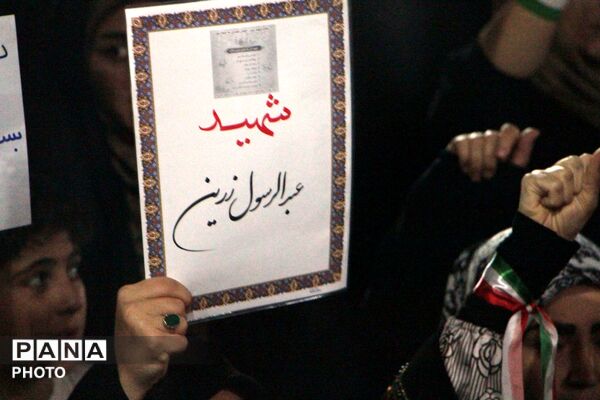 شهید
عبدالرسول زرین
بس
PANA
PHOTO